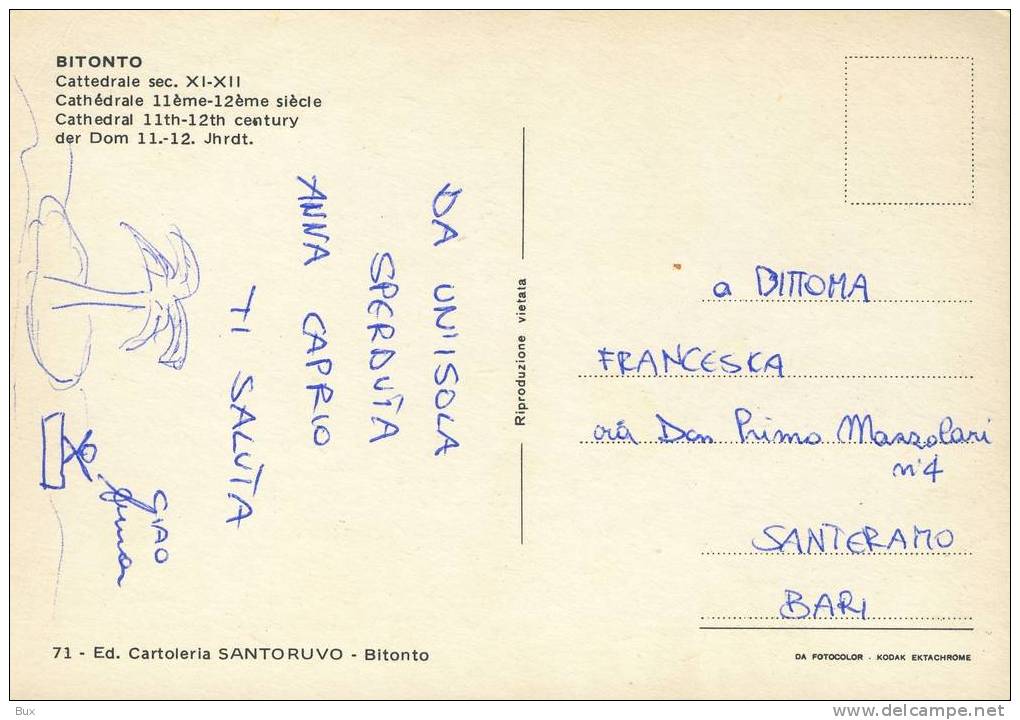 BITONTO
Cattedrale sec. XI-XII
Cathédrale 11ème-12ème siècle
Cathedral 11th-12th century
der Dom 11.-12. Jhrdt.
DA UN'ISOLA
SPERDUTA
ANNA CAPRIO
TI SALUTA
CIAO
Riproduzione vietata
a DITTOMA
FRANCESKA
via Don Primo Mazzolari
n°4
SANTERAMO
BARI
71 - Ed. Cartoleria SANTORUVO - Bitonto
DA FOTOCOLOR - KODAK EKTACHROME
Bux
www.delcampe.net